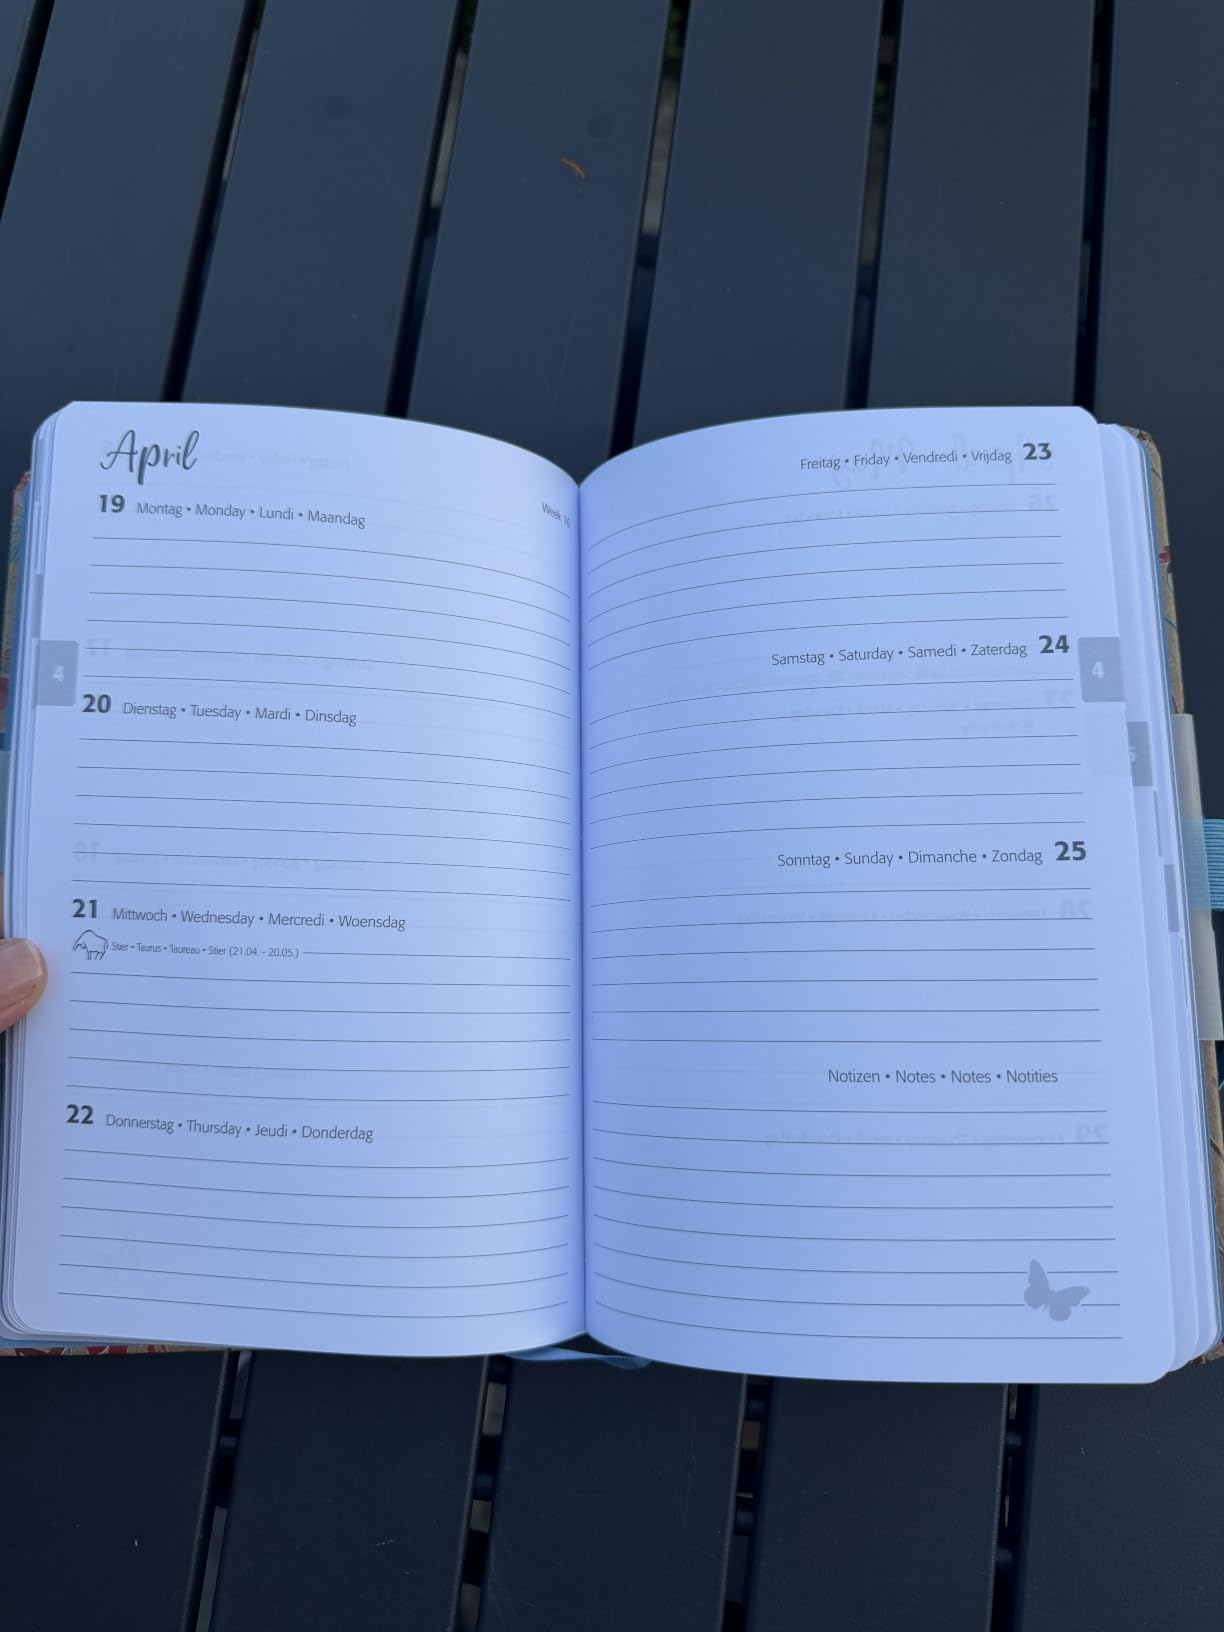 April
Week 16
19 Montag • Monday • Lundi • Maandag
4
20 Dienstag • Tuesday • Mardi • Dinsdag
21 Mittwoch • Wednesday • Mercredi • Woensdag
Stier • Taurus • Taureau • Stier (21.04. - 20.05.)
22 Donnerstag • Thursday • Jeudi • Donderdag
Freitag • Friday • Vendredi • Vrijdag 23
Samstag • Saturday • Samedi • Zaterdag 24
4
5
Sonntag • Sunday • Dimanche • Zondag 25
Notizen • Notes • Notes • Notities